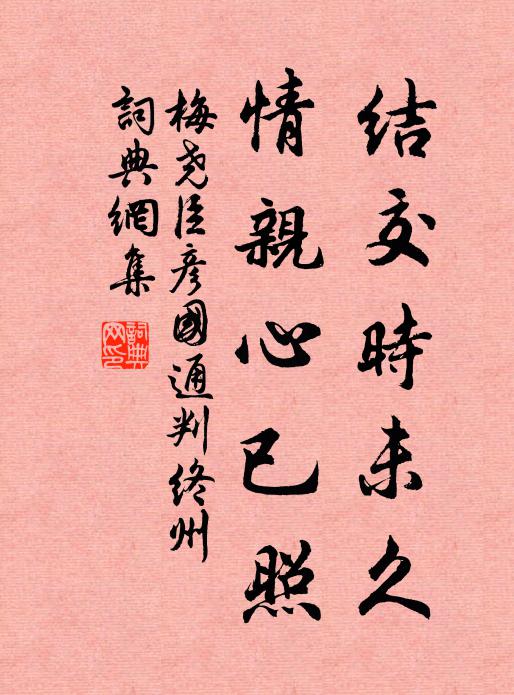 結交時未久
情親心已照
梅尧臣彦國通判终州
詞典網集
詞典網印